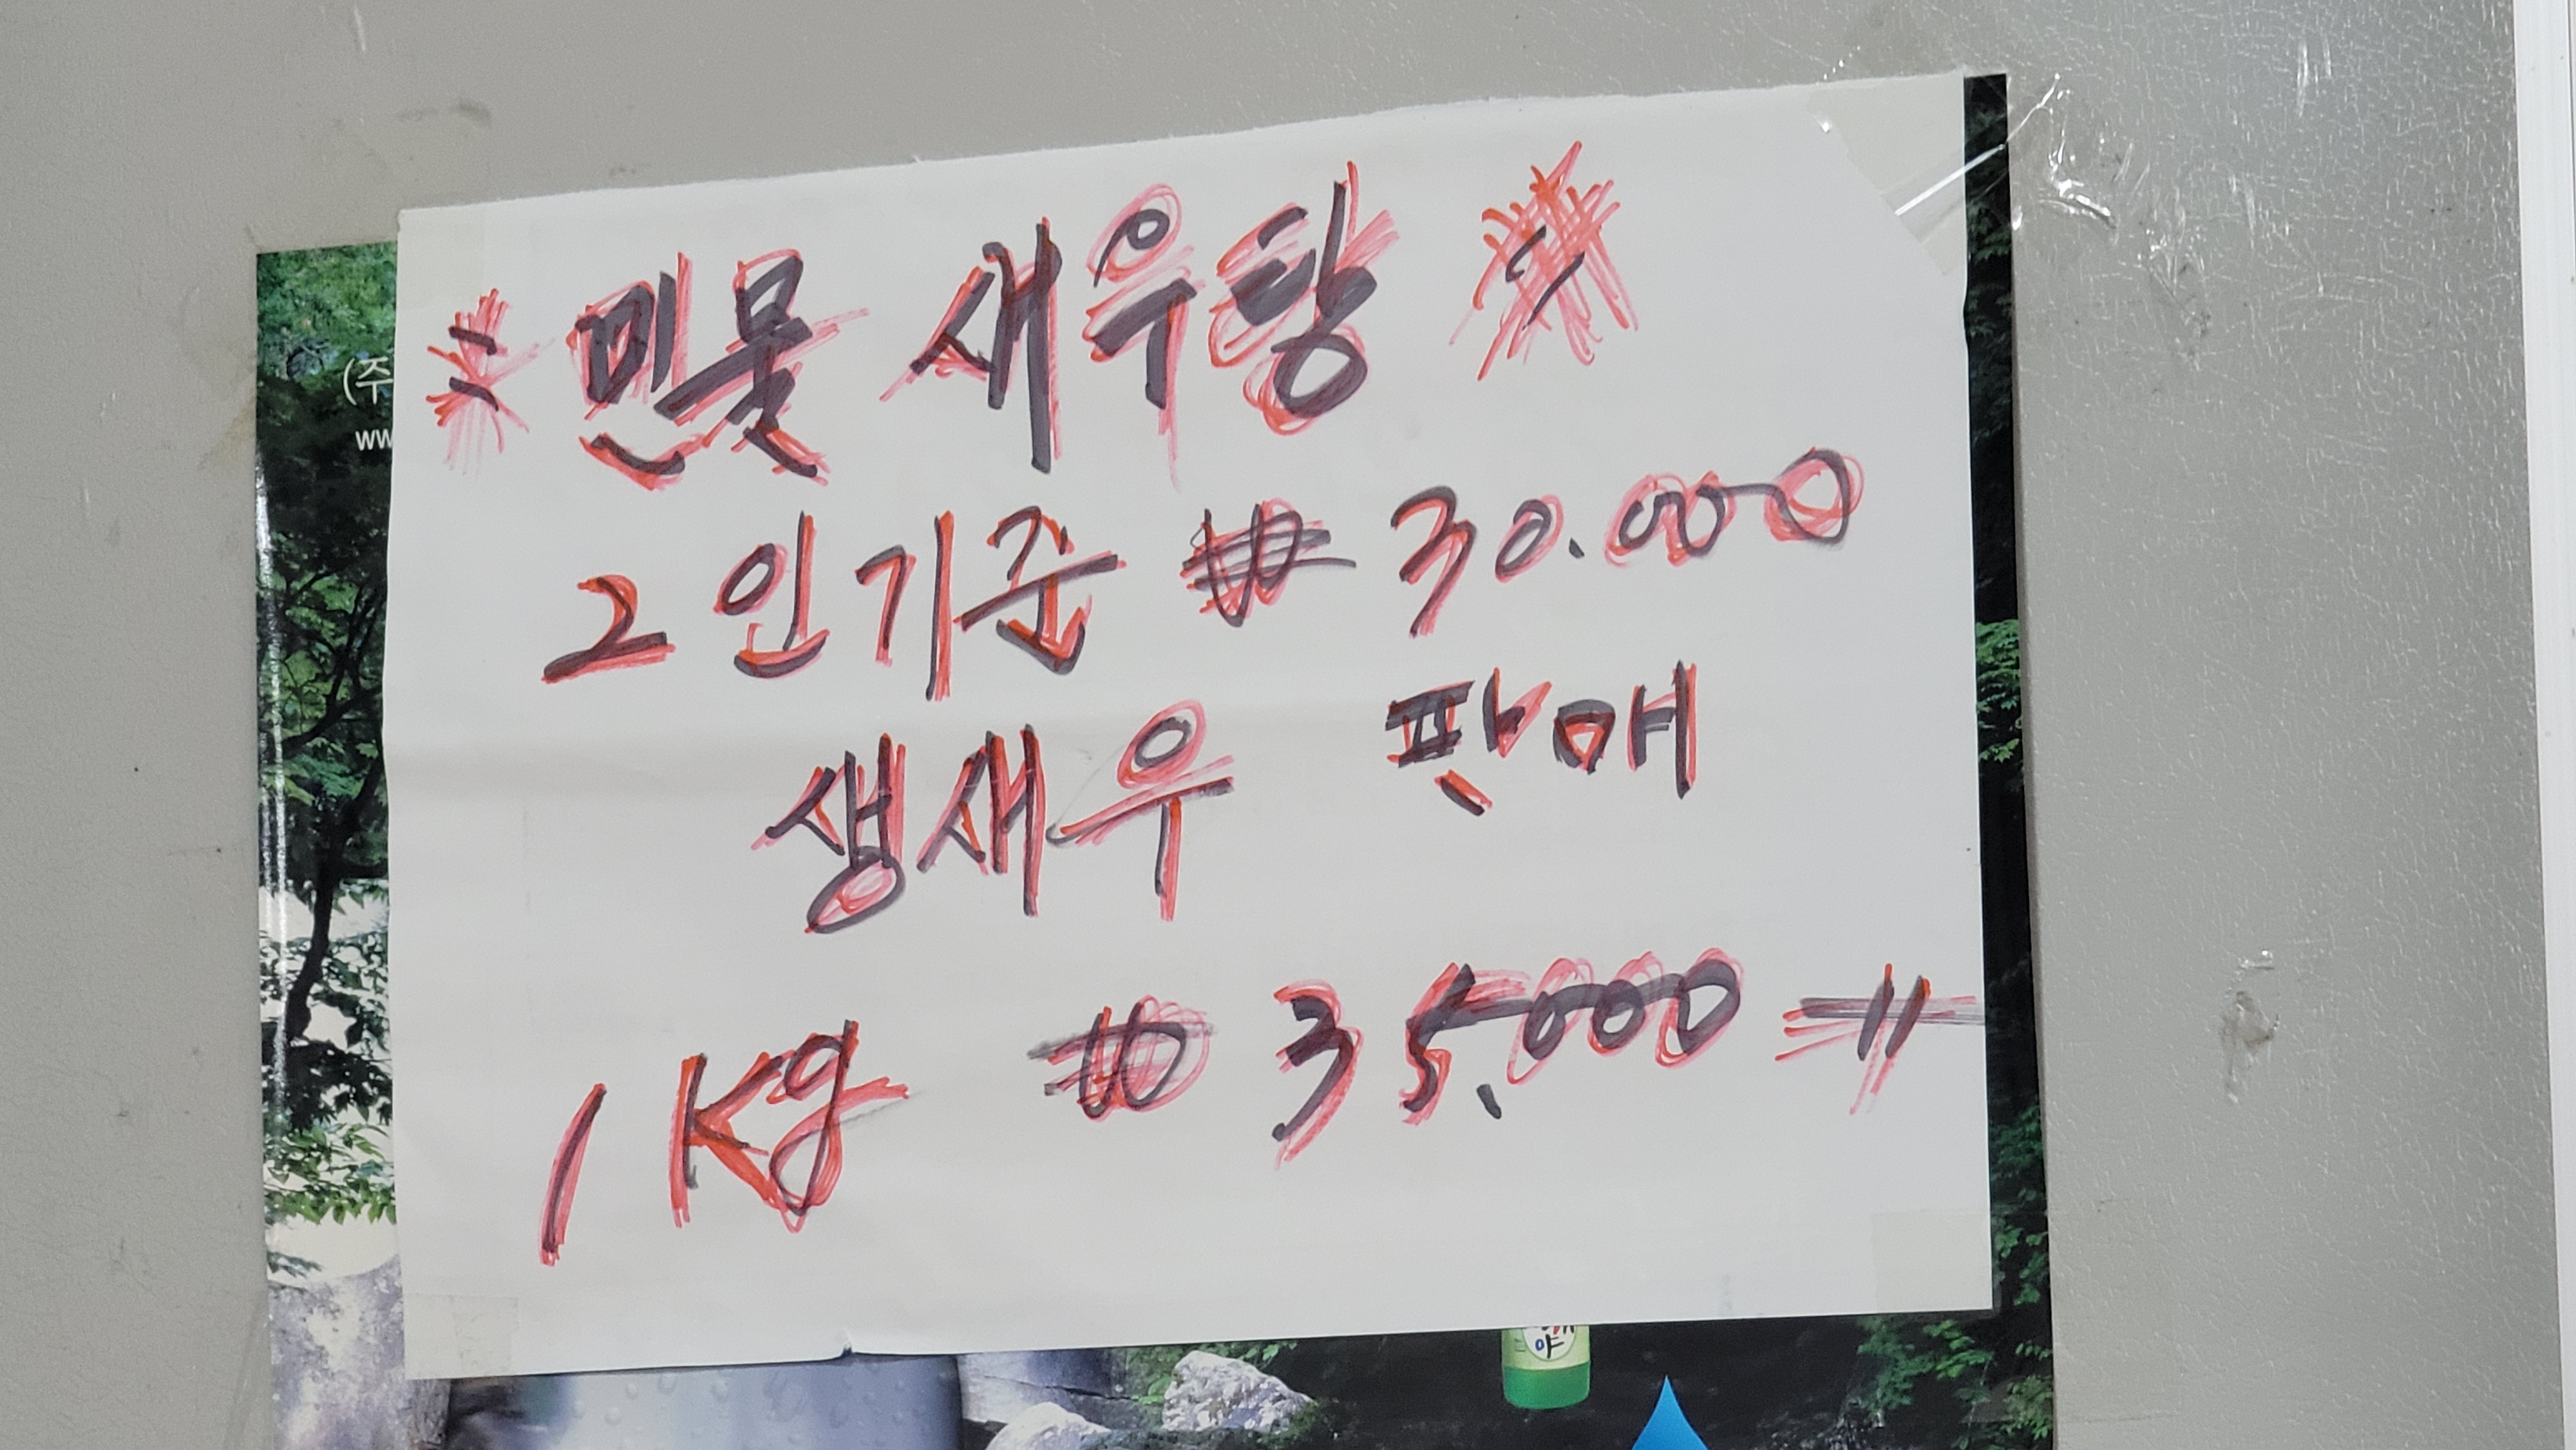 ※ 민물 새우탕 ※
2인기준 ₩ 30.000
생새우 판매
1Kg ₩ 35.000
(주
ww
야